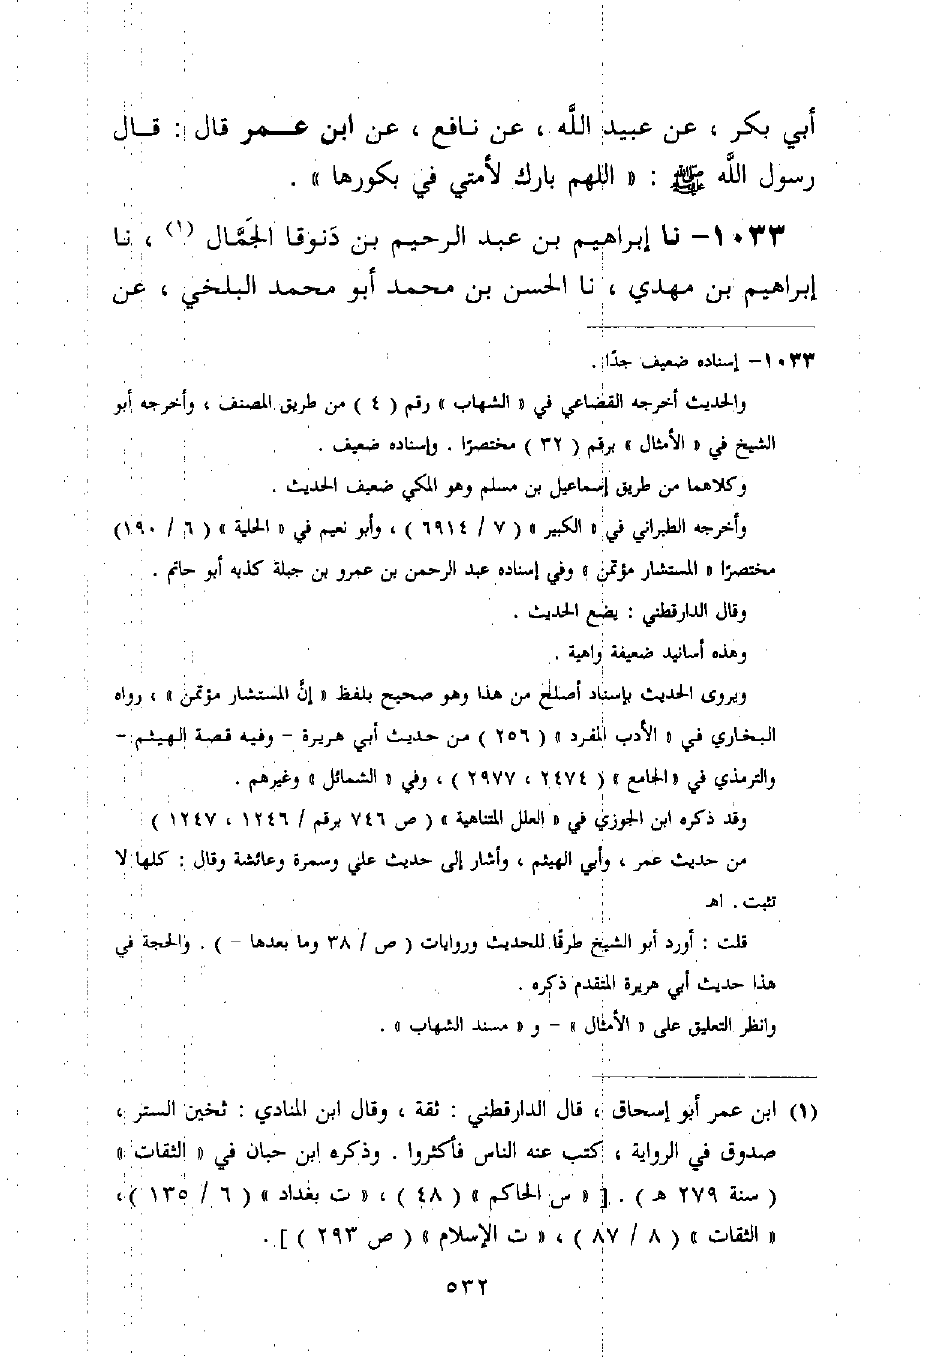 أبي بكر ، عن عبيد الله ، عن نافع ، عن ابن عمر قال : قال
رسول الله ﷺ : « اللهم بارك لأمتي في بكورها » .
١٠٣٣- نا إبراهيم بن عبد الرحيم بن دَنوقا الجَمَّال (١) ، نا
إبراهيم بن مهدي ، نا الحسن بن محمد أبو محمد البلخي ، عن
١٠٣٣- إسناده ضعيف جدًا .
والحديث أخرجه القضاعي في « الشهاب » رقم ( ٤ ) من طريق المصنف ، وأخرجه أبو
الشيخ في « الأمثال » برقم ( ٣٢ ) مختصرًا . وإسناده ضعيف .
وكلاهما من طريق إسماعيل بن مسلم وهو المكي ضعيف الحديث .
وأخرجه الطبراني في « الكبير » ( ٧ / ٦٩١٤ ) ، وأبو نعيم في « الحلية » ( ٦ / ١٩٠)
مختصرًا « المستشار مؤتمن » وفي إسناده عبد الرحمن بن عمرو بن جبلة كذبه أبو حاتم .
وقال الدارقطني : يضع الحديث .
وهذه أسانيد ضعيفة واهية .
ويروى الحديث بإسناد أصلح من هذا وهو صحيح بلفظ « إنَّ المستشار مؤتمن » ، رواه
البخاري في « الأدب المفرد » ( ٢٥٦ ) من حديث أبي هريرة - وفيه قصة الهيثم -
والترمذي في «الجامع » ( ٢٤٧٤ ، ٢٩٧٧ ) ، وفي « الشمائل » وغيرهم .
وقد ذكره ابن الجوزي في « العلل المتناهية » ( ص ٧٤٦ برقم / ١٢٤٦ ، ١٢٤٧ )
من حديث عمر ، وأبي الهيثم ، وأشار إلى حديث علي وسمرة وعائشة وقال : كلها لا
تثبت . اهـ
قلت : أورد أبو الشيخ طرقًا للحديث وروايات ( ص / ٣٨ وما بعدها - ) . والحجة في
هذا حديث أبي هريرة المتقدم ذكره .
وانظر التعليق على « الأمثال » - و « مسند الشهاب » .
(١) ابن عمر أبو إسحاق ، قال الدارقطني : ثقة ، وقال ابن المنادي : ثخين الستر ،
صدوق في الرواية ، كتب عنه الناس فأكثروا . وذكره ابن حبان في « الثقات »
( سنة ٢٧٩ هـ ) . [ « س الحاكم » ( ٤٨ ) ، « ت بغداد » ( ٦ / ١٣٥ ) ،
« الثقات » ( ٨ / ٨٧ ) ، « ت الإسلام » ( ص ٢٩٣ ) ] .
٥٣٢